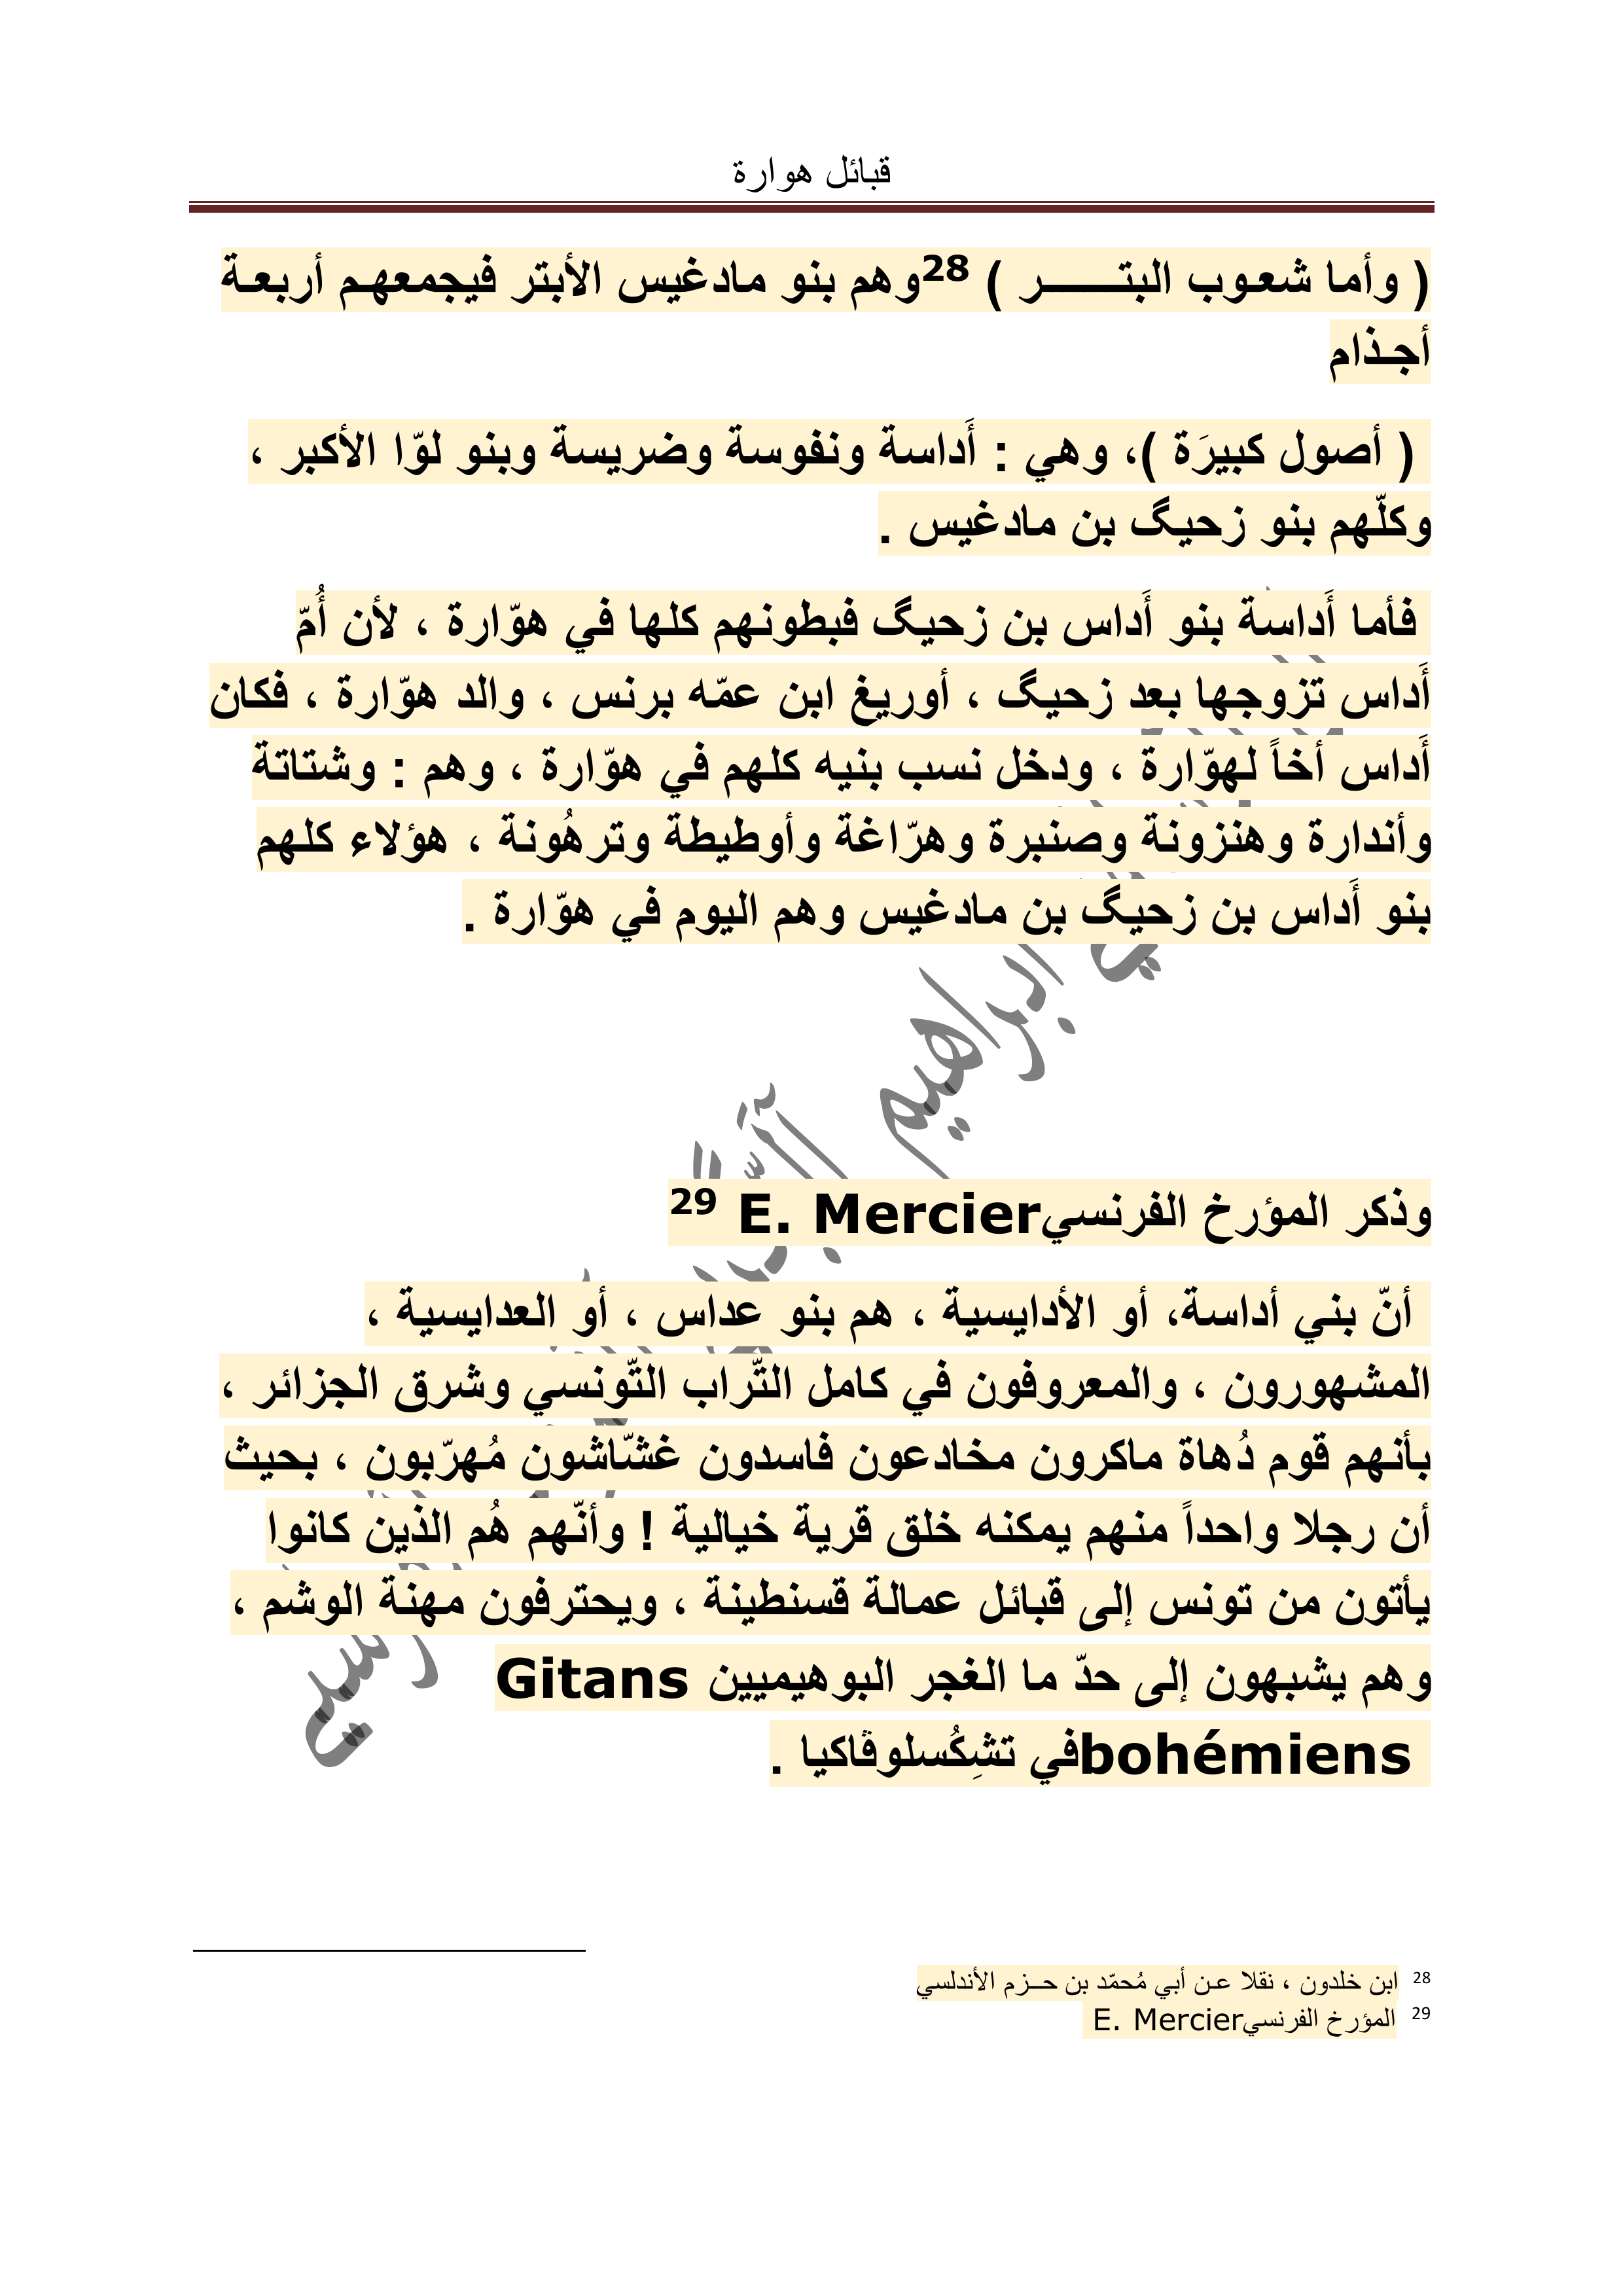 قبائل هوارة
( وأما شعـوب البتـــــــر ) 28وهم بنو مادغيس الأبتر فيجمعهـم أربعـة
أجـذام
( أصول كبيرَة )، وهي : أَداسة ونفوسة وضريسة وبنو لوّا الأكبر ،
وكلّهم بنو زحيگ بن مادغيس .
فأما أَداسة بنو أَداس بن زحيگ فبطونهم كلها في هوّارة ، لأن أُمّ
أَداس تزوجها بعد زحيگ ، أوريغ ابن عمّه برنس ، والد هوّارة ، فكان
أَداس أخاً لهوّارة ، ودخل نسب بنيه كلهم في هوّارة ، وهم : وشتاتة
وأندارة وهنزونة وصنبرة وهرّاغة وأوطيطة وترهُونة ، هؤلاء كلهم
بنو أَداس بن زحيگ بن مادغيس وهم اليوم في هوّارة .
وذكر المؤرخ الفرنسيE. Mercier 29
أنّ بني أداسة، أو الأدايسية ، هم بنو عداس ، أو العدايسية ،
المشهورون ، والمعروفون في كامل التّراب التّونسي وشرق الجزائر ،
بأنهم قوم دُهاة ماكرون مخادعون فاسدون غشّاشون مُهرّبون ، بحيث
أن رجلا واحداً منهم يمكنه خلق قرية خيالية ! وأنّهم هُم الذين كانوا
يأتون من تونس إلى قبائل عمالة قسنطينة ، ويحترفون مهنة الوشم ،
وهم يشبهون إلى حدّ ما الغجر البوهيميين Gitans
bohémiensفي تشِكُسلوڤاكيا .
28 ابن خلدون ، نقلا عـن أبي مُحمّد بن حــزم الأندلسي
29 المؤرخ الفرنسيE. Mercier